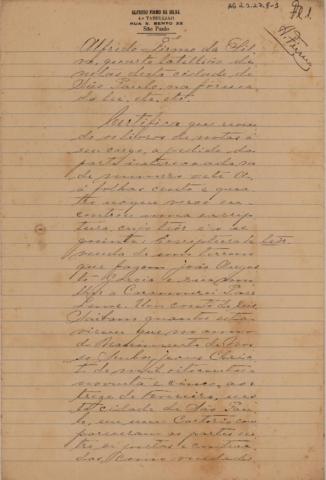 ALFREDO FIRMO DA SILVA
4º TABELLIÃO
RUA S. BENTO
São Paulo
Fl. 1.
A. Firmo
Alfredo Firmo da Sil-
va, quarto tabellião de
notas desta cidade de
São Paulo, na forma
da lei, etc. etc.
Certifico que reven-
do os livros de notas a
seu cargo, a pedido da
parte interessada, no
de numero sete
a folhas cento e qua-
tro verso en-
controu uma escrip-
tura, cujo teor é o se-
guinte: Escriptura de
venda de um terreno
que fazem João Augus-
to Garcia e sua mu-
lher a
Leme.
Saibam quantos esta
virem que, no anno
do Nascimento de Nos-
so Senhor Jesus Chris-
to de mil oitocentos e
noventa e cinco, aos
treze de Fevereiro, nes-
ta cidade de São Pau-
lo, em meu Cartorio, com-
pareceram as partes en-
tre si justas e contracta-
das, como vendedo-